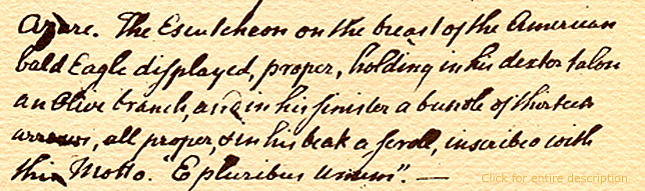 azure. The Escutcheon on the breast of the American
bald Eagle displayed, proper, holding in his dexter talon
an Olive branch, and in his sinister a bundle of thirteen
arrows, all proper, & in his beak a scroll, inscribed with
this Motto. "E pluribus Unum". —
Click for entire description